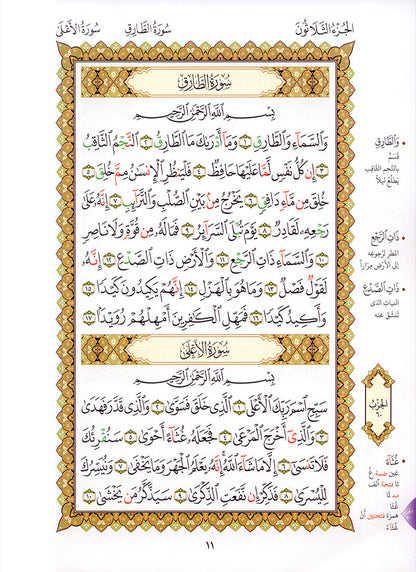 الجُزْءُ الثَّلَاثُونَ سُورَةُ الطَّارِقِ سُورَةُ الأَعْلَىٰ
سُورَةُ الطَّارِقِ
بِسْمِ اللَّهِ الرَّحْمَٰنِ الرَّحِيمِ
وَالسَّمَاءِ وَالطَّارِقِ ١ وَمَا أَدْرَىٰكَ مَا الطَّارِقُ ٢ النَّجْمُ الثَّاقِبُ
٣ إِن كُلُّ نَفْسٍ لَّمَّا عَلَيْهَا حَافِظٌ ٤ فَلْيَنظُرِ الْإِنسَٰنُ مِمَّ خُلِقَ ٥
خُلِقَ مِن مَّاءٍ دَافِقٍ ٦ يَخْرُجُ مِنۢ بَيْنِ الصُّلْبِ وَالتَّرَائِبِ ٧ إِنَّهُۥ عَلَىٰ
رَجْعِهِۦ لَقَادِرٌ ٨ يَوْمَ تُبْلَى السَّرَائِرُ ٩ فَمَا لَهُۥ مِن قُوَّةٍ وَلَا نَاصِرٍ
١٠ وَالسَّمَاءِ ذَاتِ الرَّجْعِ ١١ وَالْأَرْضِ ذَاتِ الصَّدْعِ ١٢ إِنَّهُۥ
لَقَوْلٌ فَصْلٌ ١٣ وَمَا هُوَ بِالْهَزْلِ ١٤ إِنَّهُمْ يَكِيدُونَ كَيْدًا ١٥
وَأَكِيدُ كَيْدًا ١٦ فَمَهِّلِ الْكَٰفِرِينَ أَمْهِلْهُمْ رُوَيْدًۢا ١٧
سُورَةُ الأَعْلَىٰ
بِسْمِ اللَّهِ الرَّحْمَٰنِ الرَّحِيمِ
سَبِّحِ اسْمَ رَبِّكَ الْأَعْلَى ١ الَّذِي خَلَقَ فَسَوَّىٰ ٢ وَالَّذِي قَدَّرَ فَهَدَىٰ
٣ وَالَّذِي أَخْرَجَ الْمَرْعَىٰ ٤ فَجَعَلَهُۥ غُثَاءً أَحْوَىٰ ٥ سَنُقْرِئُكَ
فَلَا تَنسَىٰ ٦ إِلَّا مَا شَاءَ اللَّهُ إِنَّهُۥ يَعْلَمُ الْجَهْرَ وَمَا يَخْفَىٰ ٧ وَنُيَسِّرُكَ
لِلْيُسْرَىٰ ٨ فَذَكِّرْ إِن نَّفَعَتِ الذِّكْرَىٰ ٩ سَيَذَّكَّرُ مَن يَخْشَىٰ ١٠
وَالطَّارِقِ
قَسَمٌ
بالنَّجم الثَّاقِب
يَطْلُعُ لَيلاً
ذَاتِ الرَّجْعِ
المطر لرجوعه
إلى الأرض مِرَاراً
ذَاتِ الصَّدْعِ
النبات الذي
تَنشَقُّ عنه
الحِزْب
٦٠
غُثَاءً
غين ضمة غُ
ثا فتحة ألف
مد ثَا
غُثَا
همزة فتحتين ءً
غُثَاءً
١١